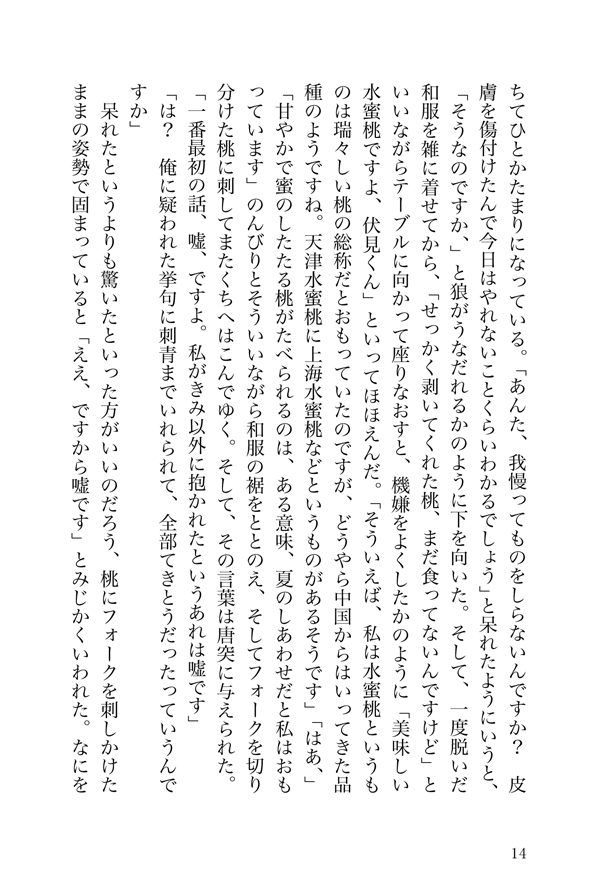 ちてひとかたまりになっている。「あんた、我慢ってものをしらないんですか？　皮
膚を傷付けたんで今日はやれないことくらいわかるでしょう」と呆れたようにいうと、
「そうなのですか、」と狼がうなだれるかのように下を向いた。そして、一度脱いだ
和服を雑に着せてから、「せっかく剥いてくれた桃、まだ食ってないんですけど」と
いいながらテーブルに向かって座りなおすと、機嫌をよくしたかのように「美味しい
水蜜桃ですよ、伏見くん」といってほほえんだ。「そういえば、私は水蜜桃というも
のは瑞々しい桃の総称だとおもっていたのですが、どうやら中国からはいってきた品
種のようですね。天津水蜜桃に上海水蜜桃などというものがあるそうです」「はあ、」
「甘やかで蜜のしたたる桃がたべられるのは、ある意味、夏のしあわせだと私はおも
っています」のんびりとそういいながら和服の裾をととのえ、そしてフォークを切り
分けた桃に刺してまたくちへはこんでゆく。そして、その言葉は唐突に与えられた。
「一番最初の話、嘘、ですよ。私がきみ以外に抱かれたというあれは嘘です」
「は？　俺に疑われた挙句に刺青までいれられて、全部てきとうだったっていうんで
すか」
　呆れたというよりも驚いたといった方がいいのだろう、桃にフォークを刺しかけた
ままの姿勢で固まっていると「ええ、ですから嘘です」とみじかくいわれた。なにを
14